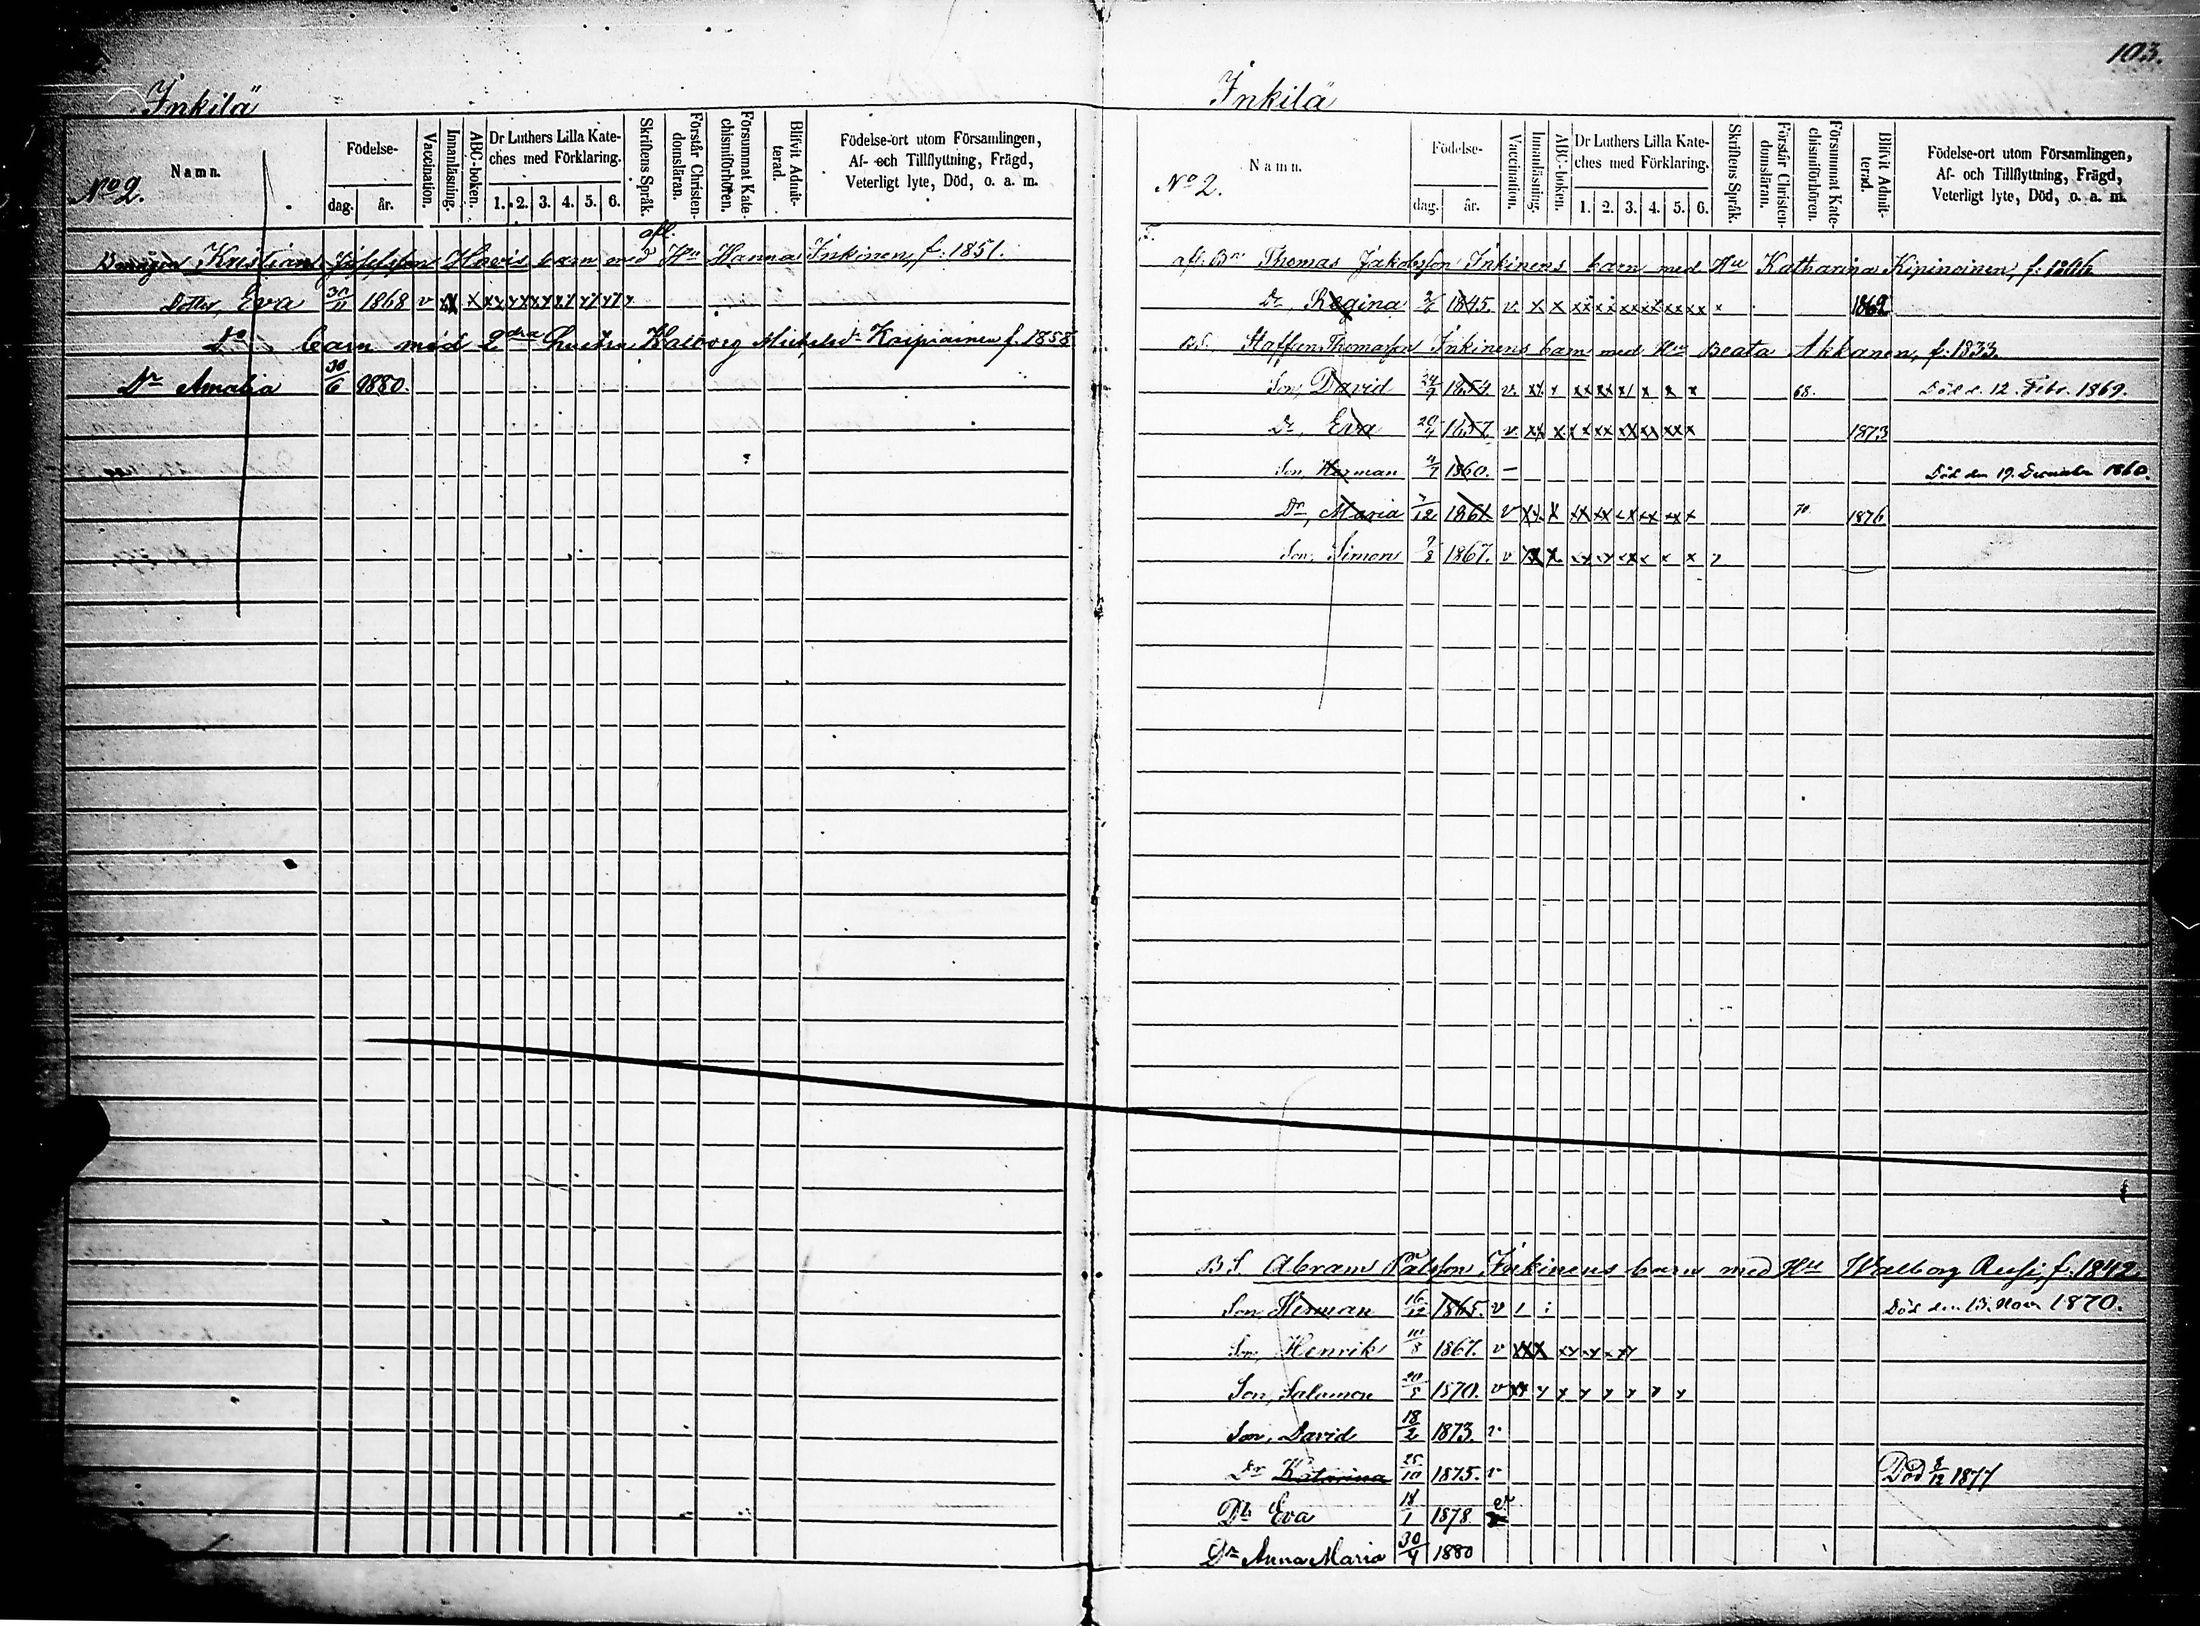 103.
Inkilä
No 2.
Namn.
Födelse-
dag.
år.
Vaccination.
Innanläsning.
ABC-boken.
Dr Luthers Lilla Kate-
ches med Förklaring.
1. 2. 3. 4. 5. 6.
Skriftens Språk.
Förstår Christen-
domsläran.
Försummat Kate-
chismiförhören.
Blifvit Admit-
terad.
Födelse-ort utom Församlingen,
Af- och Tillflyttning, Frägd,
Veterligt lyte, Död, o. a. m.
afl.
Kristian Josefsson Hovis barn med Hu Hanna Inkinen, f. 1851.
Dotter, Eva 30/11 1868 v
Do barn med 2dra hustru Walborg Michelsdr Kaipiainen f. 1858
Dr Amalia 30/6 1880.
Inkilä
No 2.
Namn.
Födelse-
dag.
år.
Vaccination.
Innanläsning.
ABC-boken.
Dr Luthers Lilla Kate-
ches med Förklaring.
1. 2. 3. 4. 5. 6.
Skriftens Språk.
Förstår Christen-
domsläran.
Försummat Kate-
chismiförhören.
Blifvit Admit-
terad.
Födelse-ort utom Församlingen,
Af- och Tillflyttning, Frägd,
Veterligt lyte, Död, o. a. m.
afl. Bn Thomas Jakobsson Inkinens barn med Hu Katharina Kipinoinen, f.
Dr, Regina 1845. v. x x xx xx xx xx xx xx x 1862
B.S. Staffan Thomasson Inkinens barn med Hu Beata Akkanen, f. 1833.
Son, David 24/9 1854. v. 68. Död d. 12. Febr. 1869.
Dr, Eva 1857. v. 1873
Son, Herman 1860. — Död den 19. December 1860.
Dr, Maria 1861 v 70. 1876
Son, Simon 9/8 1867. v
B S. Abram Pålsson Inkinens barn med Hu Walborg Rusi, f. 1842
Son, Herman 16/12 1865. v Död den 13. Nov. 1870.
Son, Henrik 10/8 1867. v
Son, Salomon 20/5 1870. v
Son, David 18/2 1873. v
Dr Katarina 25/10 1875. v Död 8/12 1877
Dr Eva 18/1 1878 v
Dr Anna Maria 30/4 1880